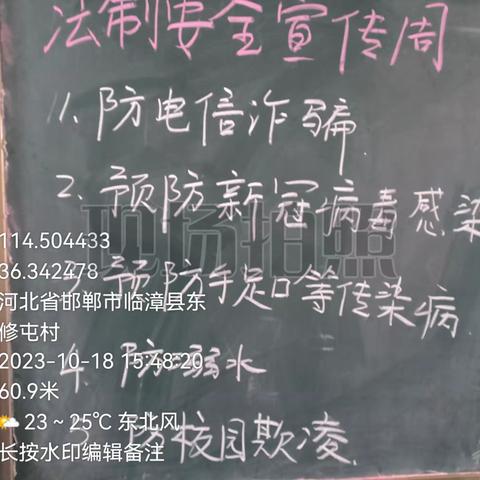 法制安全宣传周
1、防电信诈骗
2、预防新冠病毒感染
现场拍照
114.504433
36.342478
3、预防手足口等传染病
河北省邯郸市临漳县东
修屯村
2023-10-18 15:48:20
4、防溺水
60.9米
23~25℃ 东北风
5、防校园欺凌
长按水印编辑备注